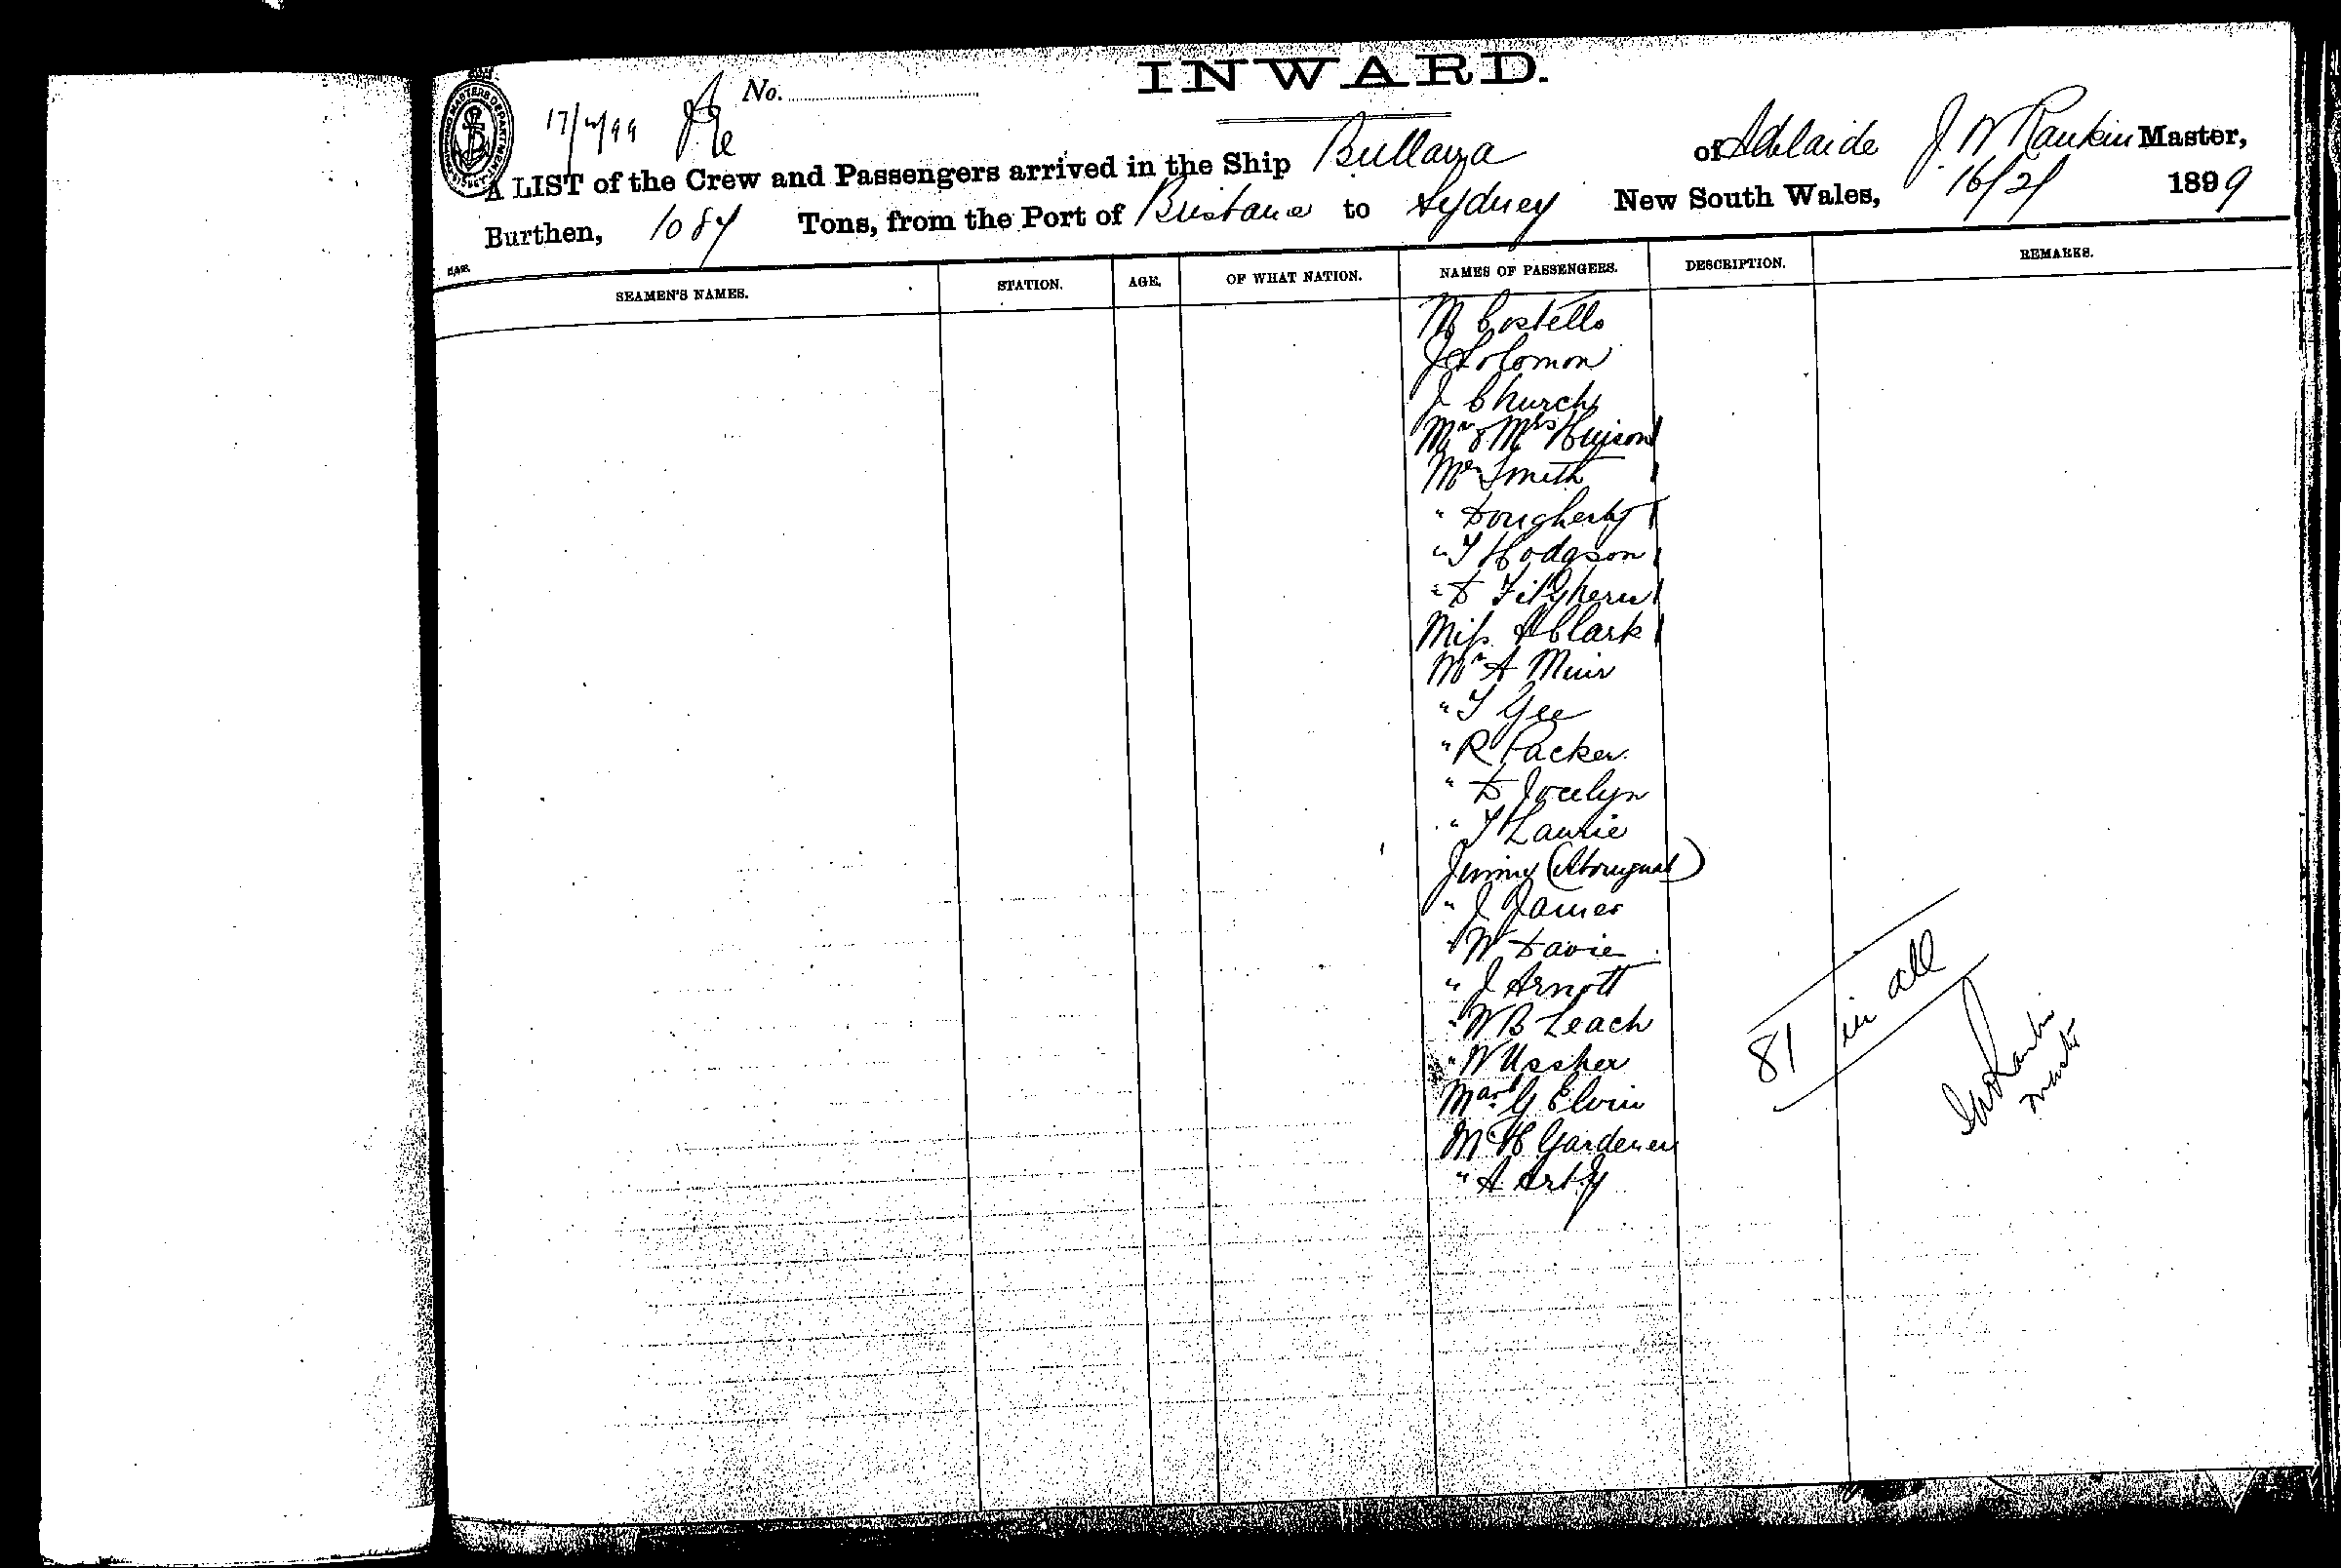 INWARD.
No.
17/2/99
SHIPPING MASTERS DEPARTMENT
A LIST of the Crew and Passengers arrived in the Ship Bullarra of Adelaide J. W Rankin Master,
Burthen, 1084 Tons, from the Port of Brisbane to Sydney New South Wales, 16/2/ 1899
SEAMEN'S NAMES. STATION. AGE. OF WHAT NATION. NAMES OF PASSENGERS. DESCRIPTION. REMARKS.
M Costello
J Solomon
J Church
Mr & Mrs
Mr Smith
" Dougherty
" T Hodgson
" D
Miss A Clark
Mr A Muir
" T Gee
" R Packer
" D Jocelyn
" T Laurie
Jimmy (Aboriginal)
" J James
" W Davie
" J Arnott
" W B Leach
" W Ussher
Mast G Elvin
Mr H Gardener
" A
81 in all
JW Rankin
Master